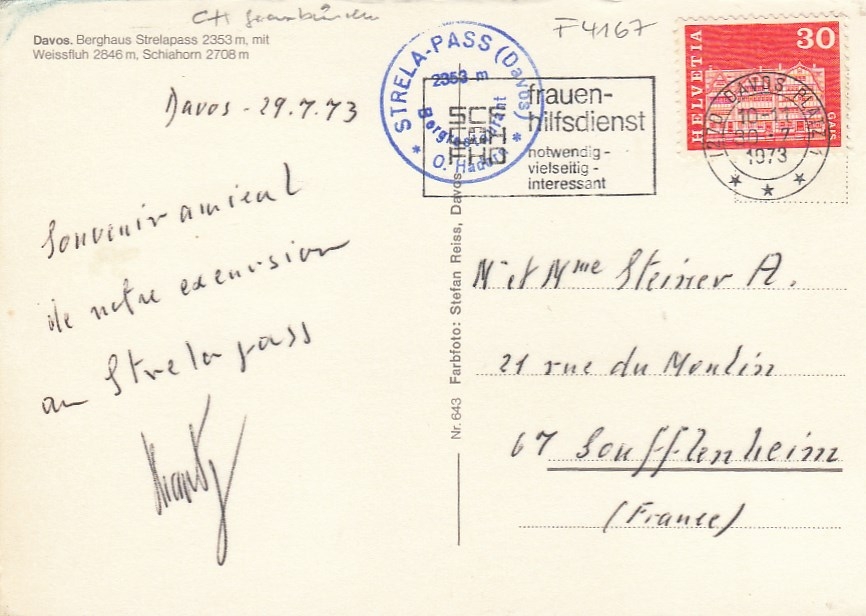 CH Graubünden
F4167
Davos. Berghaus Strelapass 2353 m, mit
Weissfluh 2846 m, Schiahorn 2708 m
Davos - 29.7.73
Souvenir amical
de notre excursion
au Strelapass
* STRELA-PASS (Davos) *
2353 m
O. Hadorn
SCF
CFH
FHD
frauen-
hilfsdienst
notwendig -
vielseitig -
interessant
HELVETIA
30
GAIS
DAVOS PLATZ 1
30.-7.
1973
Nr. 643 Farbfoto: Stefan Reiss, Davos
Mr et Mme Steiner A.
21 rue du Moulin
67 Soufflenheim
(France)